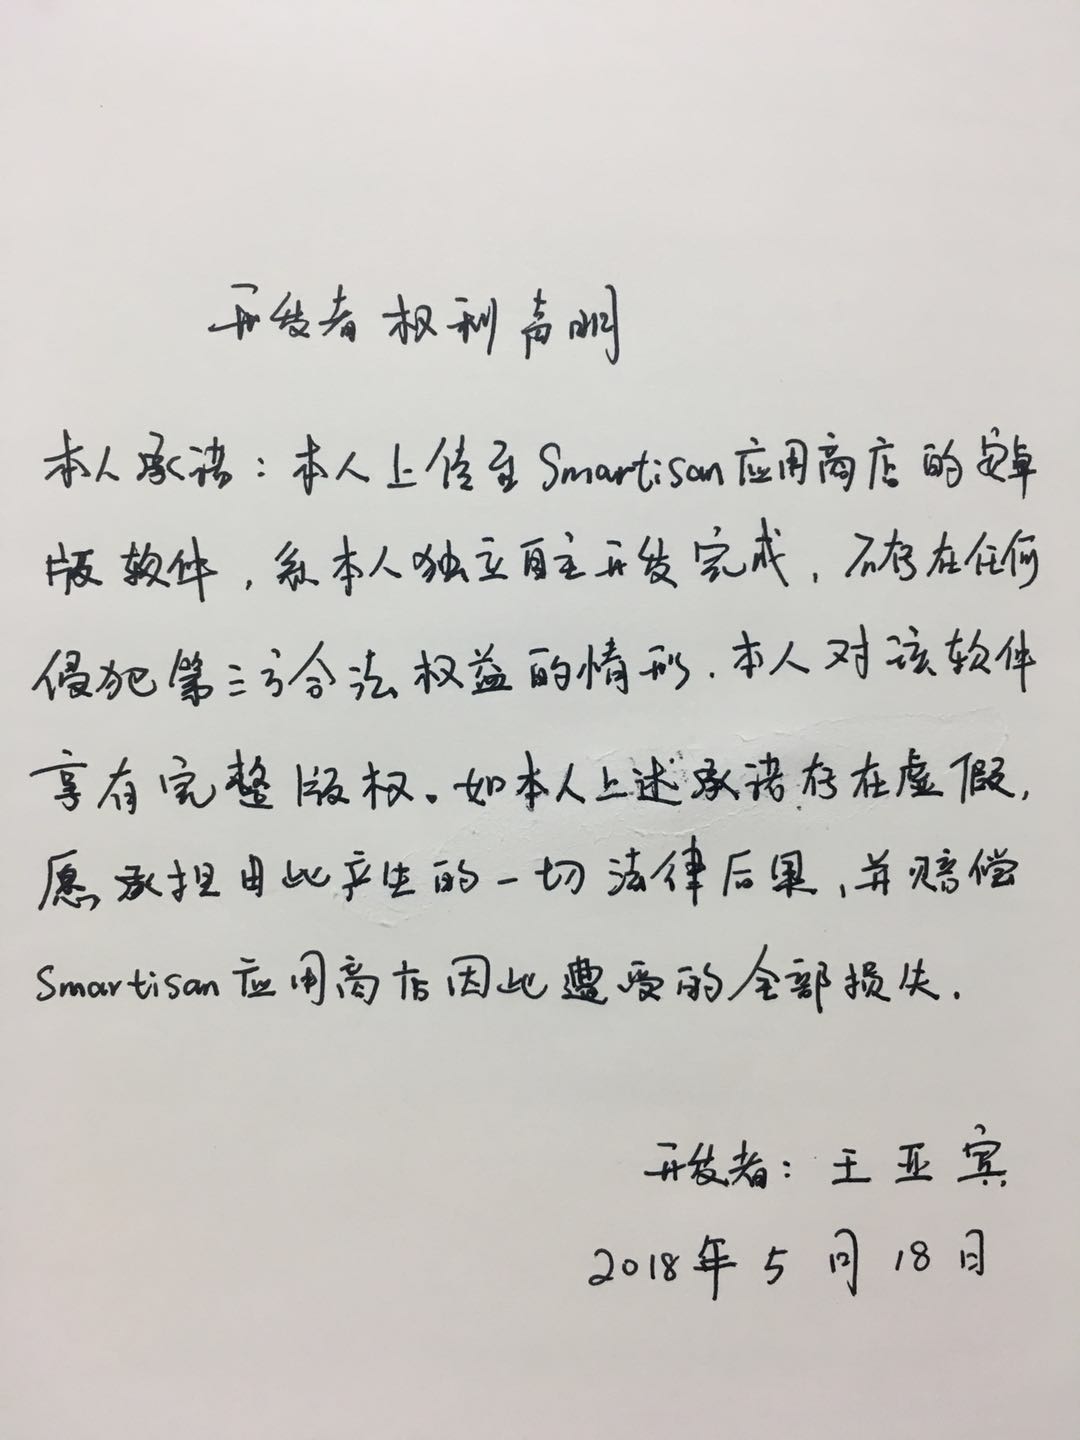 开发者权利声明
本人承诺：本人上传至Smartisan应用商店的安卓
版软件，系本人独立自主开发完成，不存在任何
侵犯第三方合法权益的情形．本人对该软件
享有完整版权。如本人上述承诺存在虚假，
愿承担由此产生的一切法律后果，并赔偿
Smartisan应用商店因此遭受的全部损失．
开发者：王亚宾
2018年5月18日